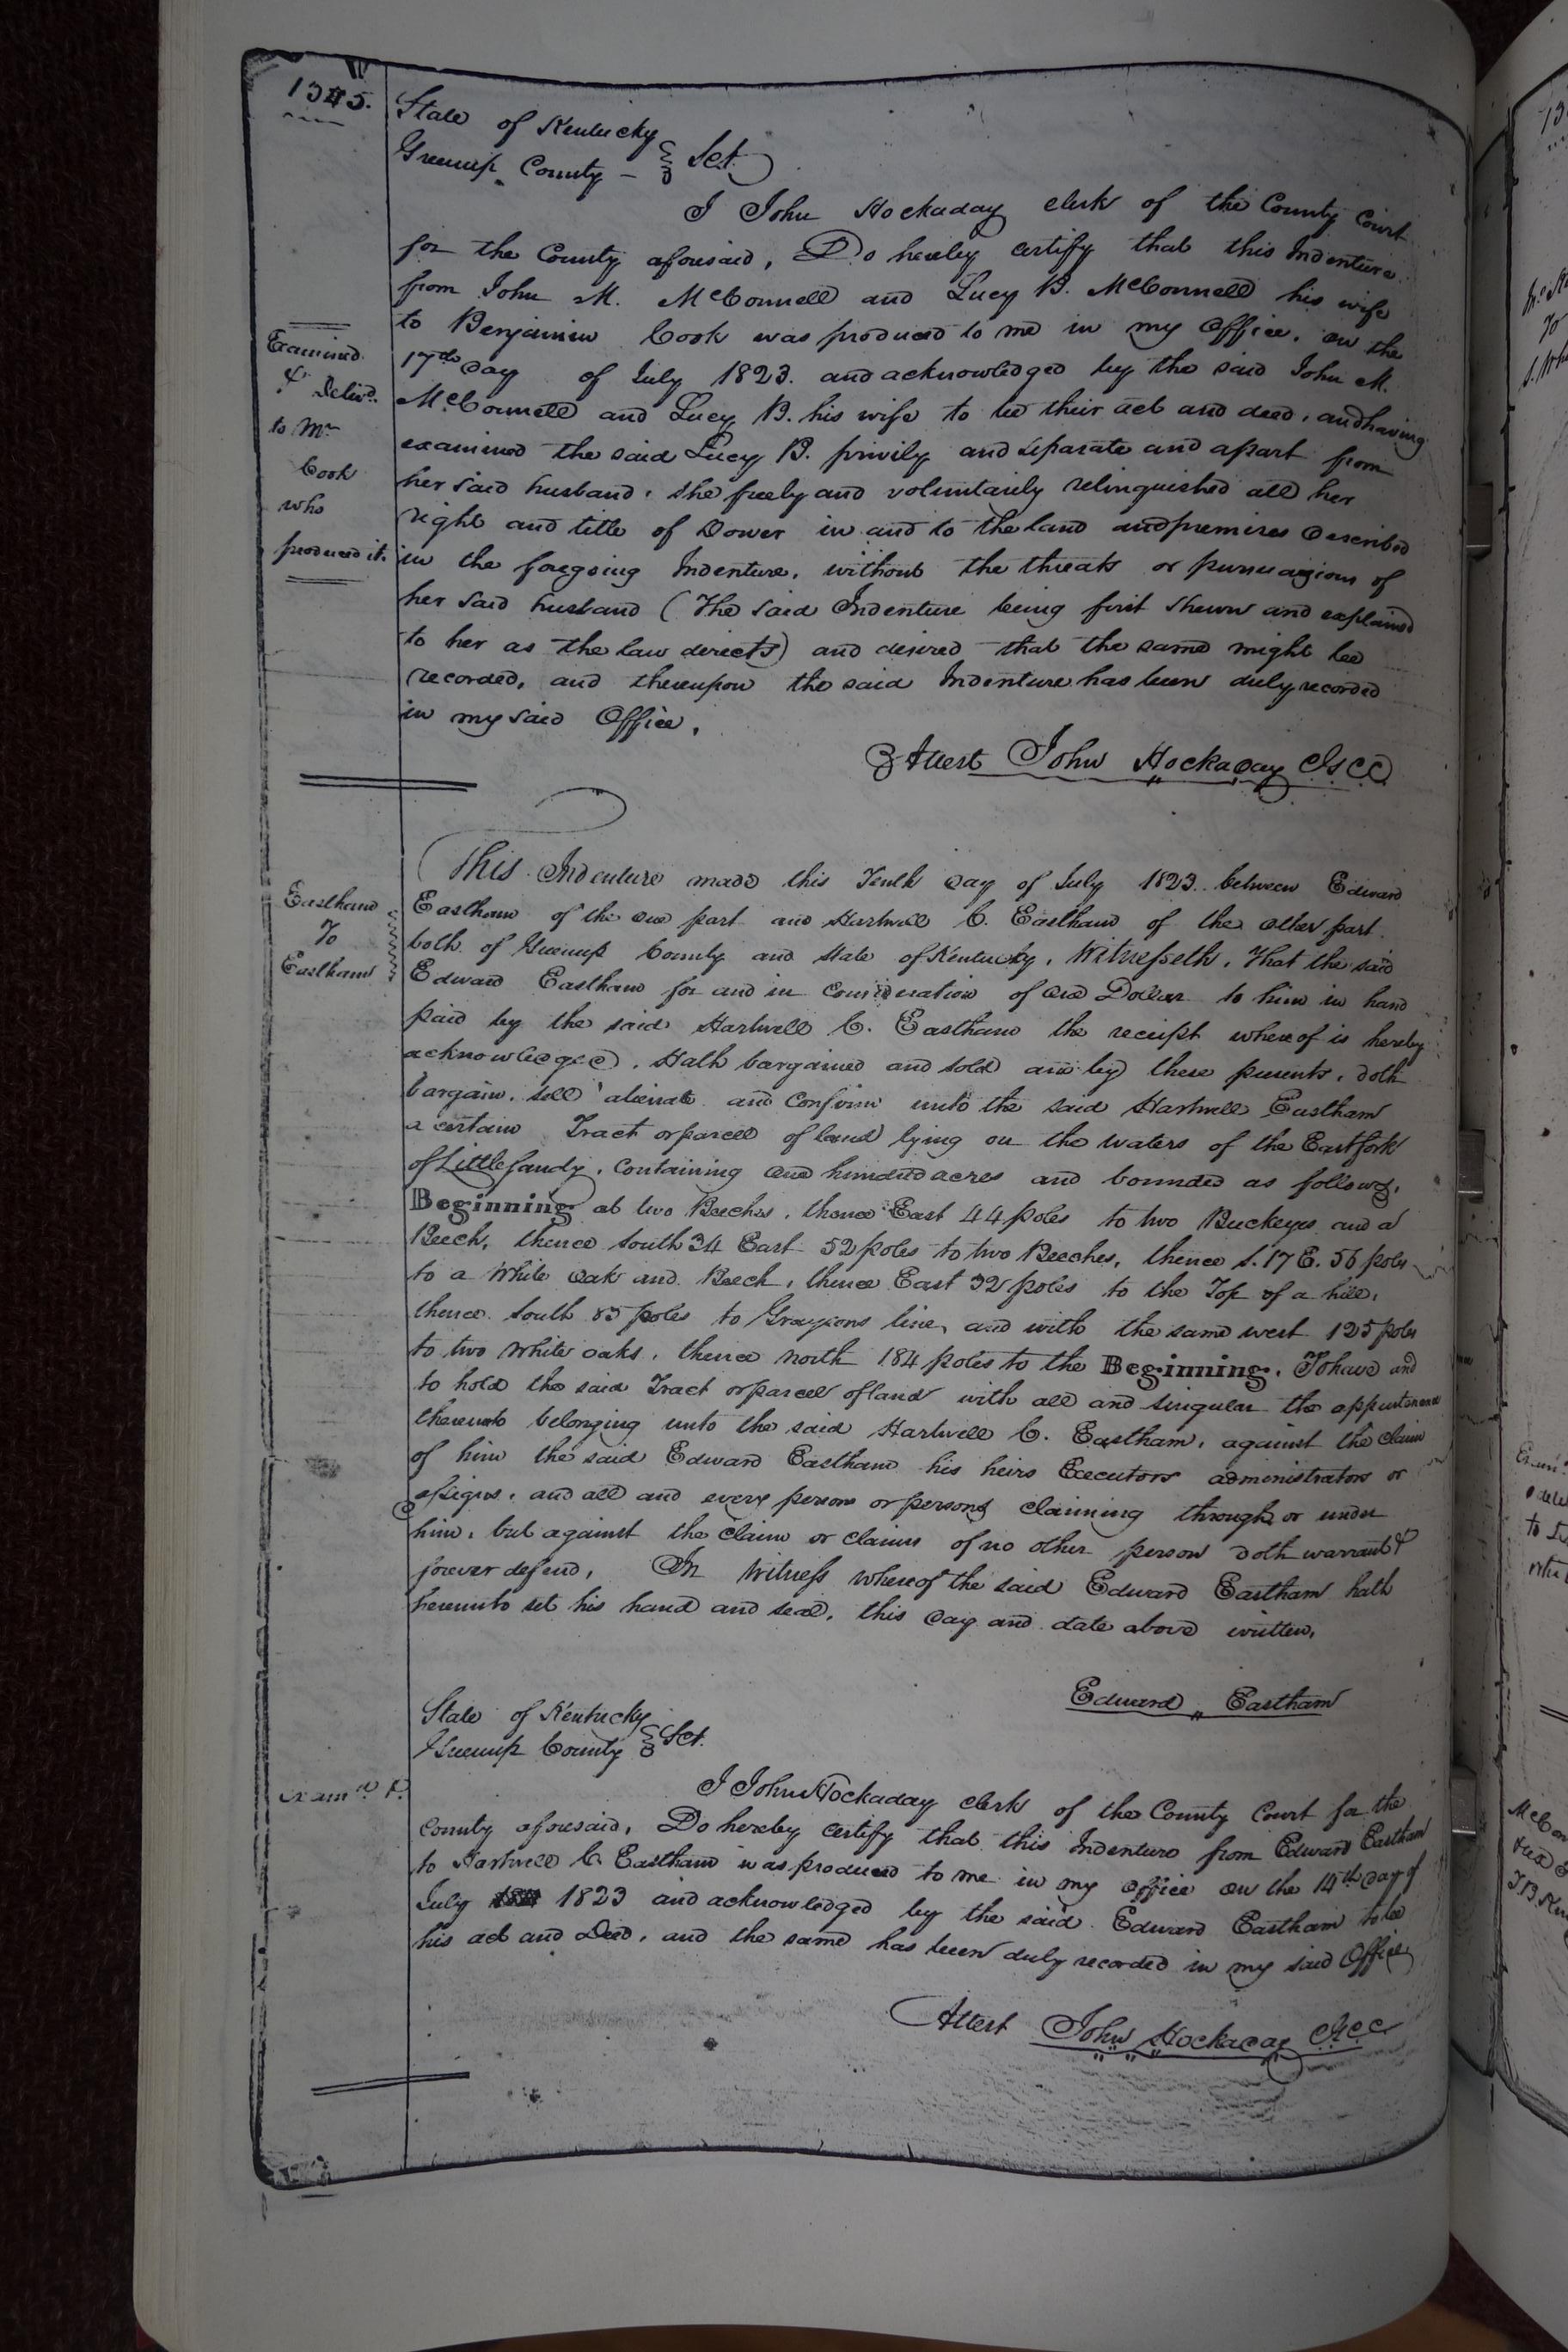 1345.
State of Kentucky
Greenup County – Sct.
I John Hockaday clerk of the County Court
for the County aforesaid, Do hereby certify that this Indenture
from John M. McConnell and Lucy B. McConnell his wife
to Benjamin Cook was produced to me in my Office, on the
17th day of July 1823. and acknowledged by the said John M.
McConnell and Lucy B. his wife to be their act and deed, and having
examined the said Lucy B. privily and separate and apart from
her said husband, she freely and voluntarily relinquished all her
right and title of Dower in and to the land and premises described
in the foregoing Indenture, without the threats or persuasions of
her said husband (The said Indenture being first shewn and explained
to her as the law directs) and desired that the same might be
recorded, and thereupon the said Indenture has been duly recorded
in my said Office.
Attest John Hockaday
Examined
& Delivd.
to Mr
Cook
who
produced it.
Eastham
To
Eastham
This Indenture made this Tenth day of July 1823. between Edward
Eastham of the one part and Hartwell C. Eastham of the other part
both of Greenup County and State of Kentucky, Witnesseth, That the said
Edward Eastham for and in consideration of one Dollar to him in hand
paid by the said Hartwell C. Eastham the receipt whereof is hereby
acknowledged, Hath bargained and sold and by these presents, doth
bargain, sell alienate and confirm unto the said Hartwell Eastham
a certain Tract or parcel of land lying on the waters of the East fork
of Little Sandy, containing one hundred acres and bounded as follows,
Beginning at two Beeches, thence East 44 poles to two Buckeyes and a
Beech, thence South 34 East 52 poles to two Beeches, thence S. 17 E. 56 poles
to a White Oak and Beech, thence East 32 poles to the Top of a hill,
thence South 85 poles to Graysons line, and with the same west 125 poles
to two White oaks, thence north 184 poles to the Beginning, To have and
to hold the said Tract or parcel of land with all and singular the appurtenance
thereunto belonging unto the said Hartwell C. Eastham, against the claim
of him the said Edward Eastham his heirs Executors administrators or
assigns, and all and every person or persons claiming through or under
him, but against the claim or claims of no other person doth warrant &
forever defend, In Witness whereof the said Edward Eastham hath
hereunto set his hand and seal, this day and date above written.
Edward Eastham
State of Kentucky
Greenup County Sct.
Examd.
I John Hockaday clerk of the County Court for the
County aforesaid, Do hereby certify that this Indenture from Edward Eastham
to Hartwell C. Eastham was produced to me in my office on the 14th day of
July 1823 and acknowledged by the said Edward Eastham to be
his act and Deed, and the same has been duly recorded in my said Office
Attest John Hockaday